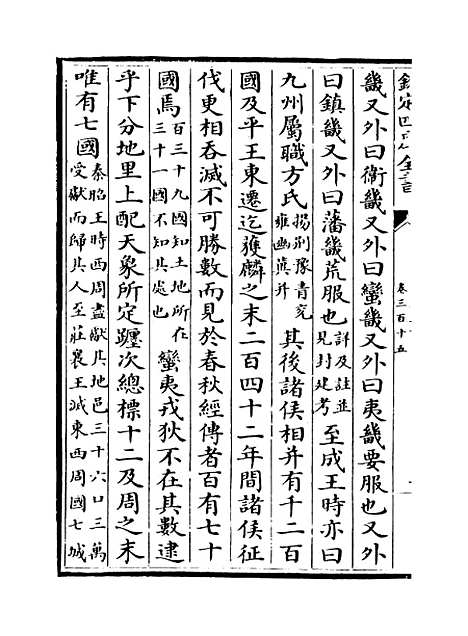 欽定四庫全書
卷三百十五
畿又外曰衛畿又外曰蠻畿又外曰夷畿要服也又外
曰鎮畿又外曰藩畿荒服也詳及註並見封建考至成王時亦曰
九州屬職方氏揚荆豫青兖雍幽冀并其後諸侯相并有千二百
國及平王東遷迄獲麟之末二百四十二年間諸侯征
伐更相吞滅不可勝數而見於春秋經傳者百有七十
國焉百三十九國知土地所在三十一國不知其處也蠻夷戎狄不在其數逮
乎下分地里上配天象所定躔次總標十二及周之末
唯有七國秦昭王時西周盡獻其地邑三十六口三萬受獻而歸其人至莊襄王滅東西周國七城